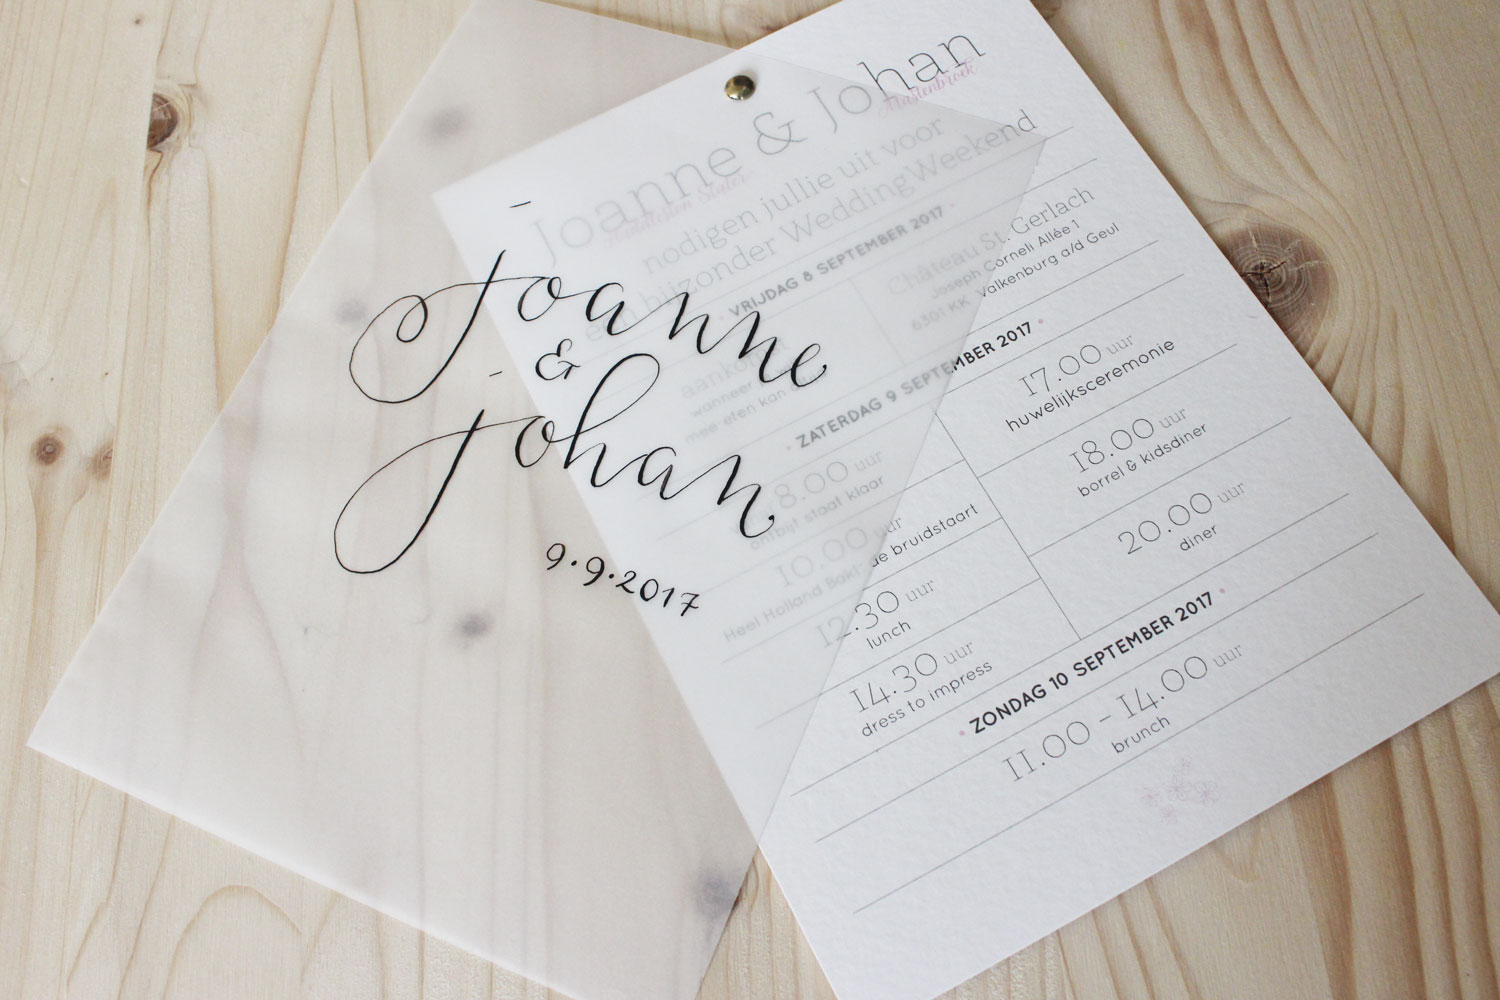 Joanne
&
Johan
9.9.2017
Joanne & Johan
nodigen jullie uit voor
een bijzonder WeddingWeekend
• VRIJDAG 8 SEPTEMBER 2017 •
wanneer
mee eten kan
Château St. Gerlach
Joseph Corneli Allée 1
6301 KK Valkenburg a/d Geul
• ZATERDAG 9 SEPTEMBER 2017 •
8.00 uur
ontbijt staat klaar
10.00 uur
Heel Holland Bakt: de bruidstaart
12.30 uur
lunch
14.30 uur
dress to impress
17.00 uur
huwelijksceremonie
18.00 uur
borrel & kidsdiner
20.00 uur
diner
• ZONDAG 10 SEPTEMBER 2017 •
11.00 - 14.00 uur
brunch